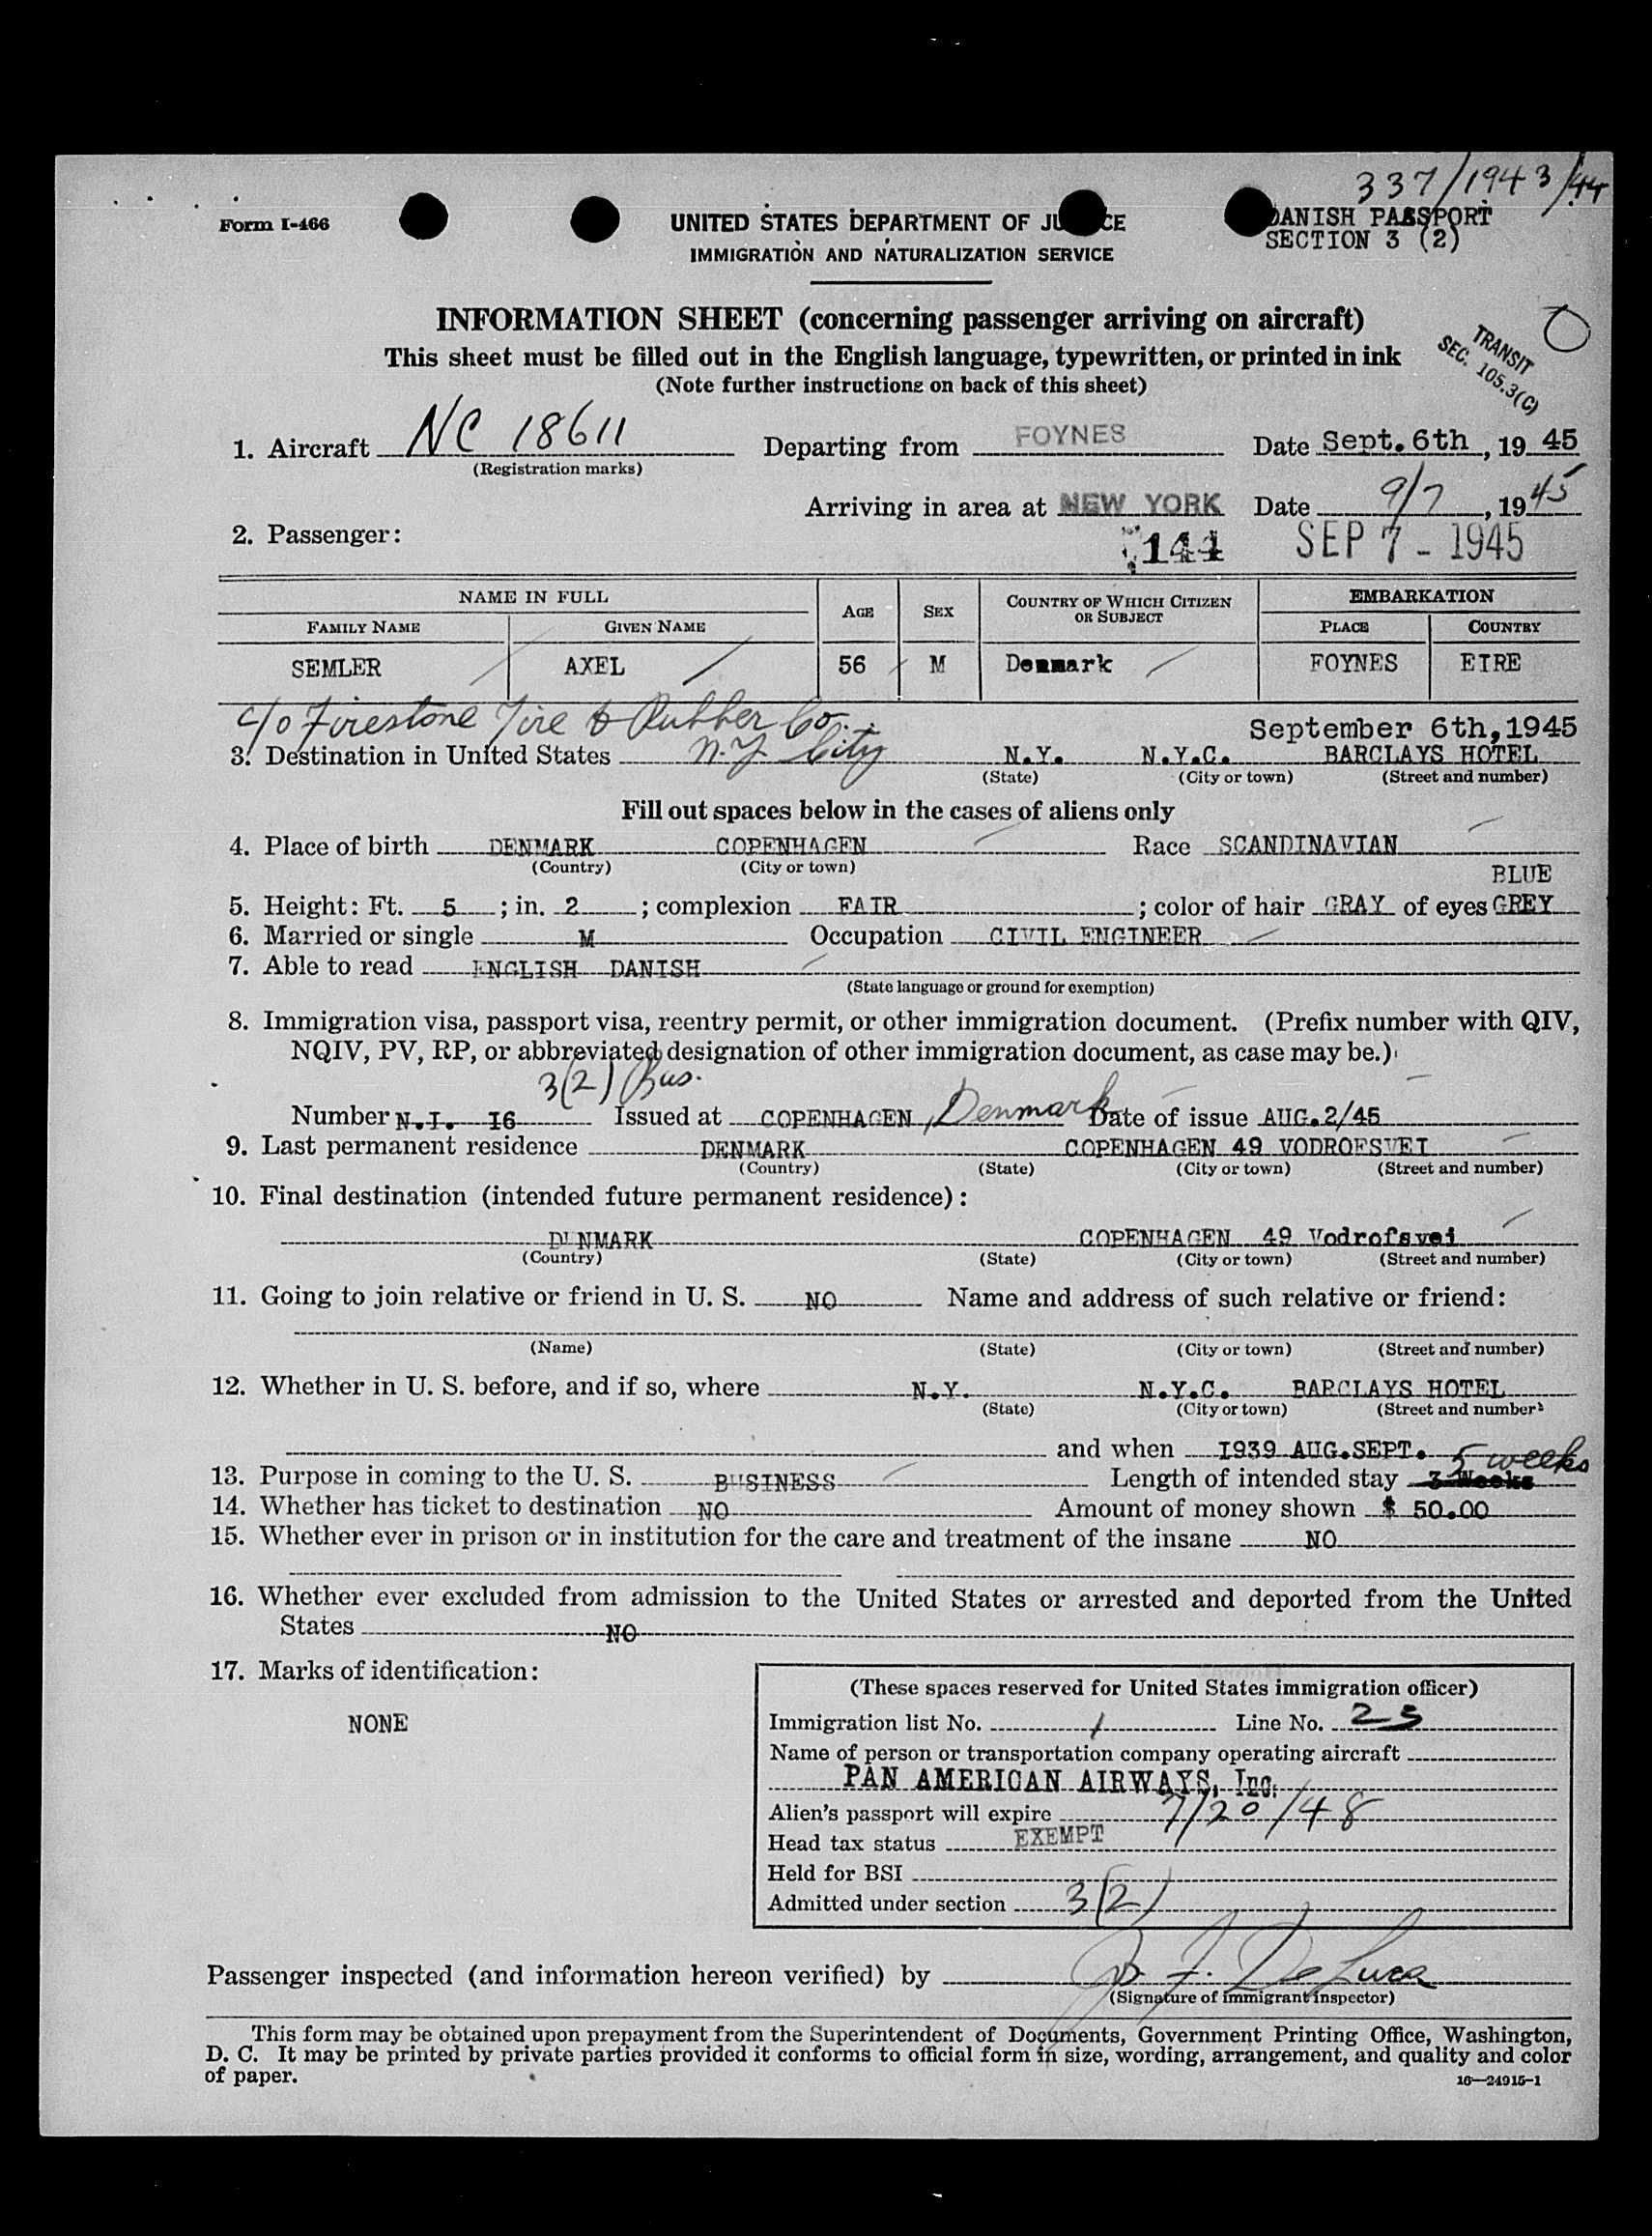 337/1943/44
Form I-466
UNITED STATES DEPARTMENT OF JU CE
DANISH PASSPORT
IMMIGRATION AND NATURALIZATION SERVICE
SECTION 3 (2)
INFORMATION SHEET (concerning passenger arriving on aircraft)
This sheet must be filled out in the English language, typewritten, or printed in ink
(Note further instructions on back of this sheet)
TRANSIT
SEC. 105.3(C)
1. Aircraft NC 18611 Departing from FOYNES Date Sept. 6th, 19 45
(Registration marks)
Arriving in area at NEW YORK Date 9/7, 19 45
2. Passenger: 144 SEP 7 - 1945
NAME IN FULL AGE SEX COUNTRY OF WHICH CITIZEN OR SUBJECT EMBARKATION
FAMILY NAME GIVEN NAME PLACE COUNTRY
SEMLER AXEL 56 M Denmark FOYNES EIRE
c/o Firestone Tire & Rubber Co.
September 6th, 1945
3. Destination in United States N.Y. City N.Y. N.Y.C. BARCLAYS HOTEL
(State) (City or town) (Street and number)
Fill out spaces below in the cases of aliens only
4. Place of birth DENMARK COPENHAGEN Race SCANDINAVIAN
(Country) (City or town)
BLUE
5. Height: Ft. 5 ; in. 2 ; complexion FAIR ; color of hair GRAY of eyes GREY
6. Married or single M Occupation CIVIL ENGINEER
7. Able to read ENGLISH DANISH
(State language or ground for exemption)
8. Immigration visa, passport visa, reentry permit, or other immigration document. (Prefix number with QIV,
NQIV, PV, RP, or abbreviated designation of other immigration document, as case may be.)
3(2) Bus.
Number N.I. I6 Issued at COPENHAGEN, Denmark Date of issue AUG.2/45
9. Last permanent residence DENMARK COPENHAGEN 49 VODROFSVEI
(Country) (State) (City or town) (Street and number)
10. Final destination (intended future permanent residence):
DENMARK COPENHAGEN 49 Vodrofsvei
(Country) (State) (City or town) (Street and number)
11. Going to join relative or friend in U. S. NO Name and address of such relative or friend:
(Name) (State) (City or town) (Street and number)
12. Whether in U. S. before, and if so, where N.Y. N.Y.C. BARCLAYS HOTEL
(State) (City or town) (Street and number)
and when I939 AUG.SEPT.
5 weeks
13. Purpose in coming to the U. S. BUSINESS Length of intended stay 3 Weeks
14. Whether has ticket to destination NO Amount of money shown $ 50.00
15. Whether ever in prison or in institution for the care and treatment of the insane NO
16. Whether ever excluded from admission to the United States or arrested and deported from the United
States NO
17. Marks of identification:
NONE
(These spaces reserved for United States immigration officer)
Immigration list No. 1 Line No. 23
Name of person or transportation company operating aircraft
PAN AMERICAN AIRWAYS, Inc.
Alien's passport will expire 7/20/48
Head tax status EXEMPT
Held for BSI
Admitted under section 3(2)
Passenger inspected (and information hereon verified) by J. F. DeLuca
(Signature of immigrant inspector)
This form may be obtained upon prepayment from the Superintendent of Documents, Government Printing Office, Washington,
D. C. It may be printed by private parties provided it conforms to official form in size, wording, arrangement, and quality and color
of paper.
16—24915-1